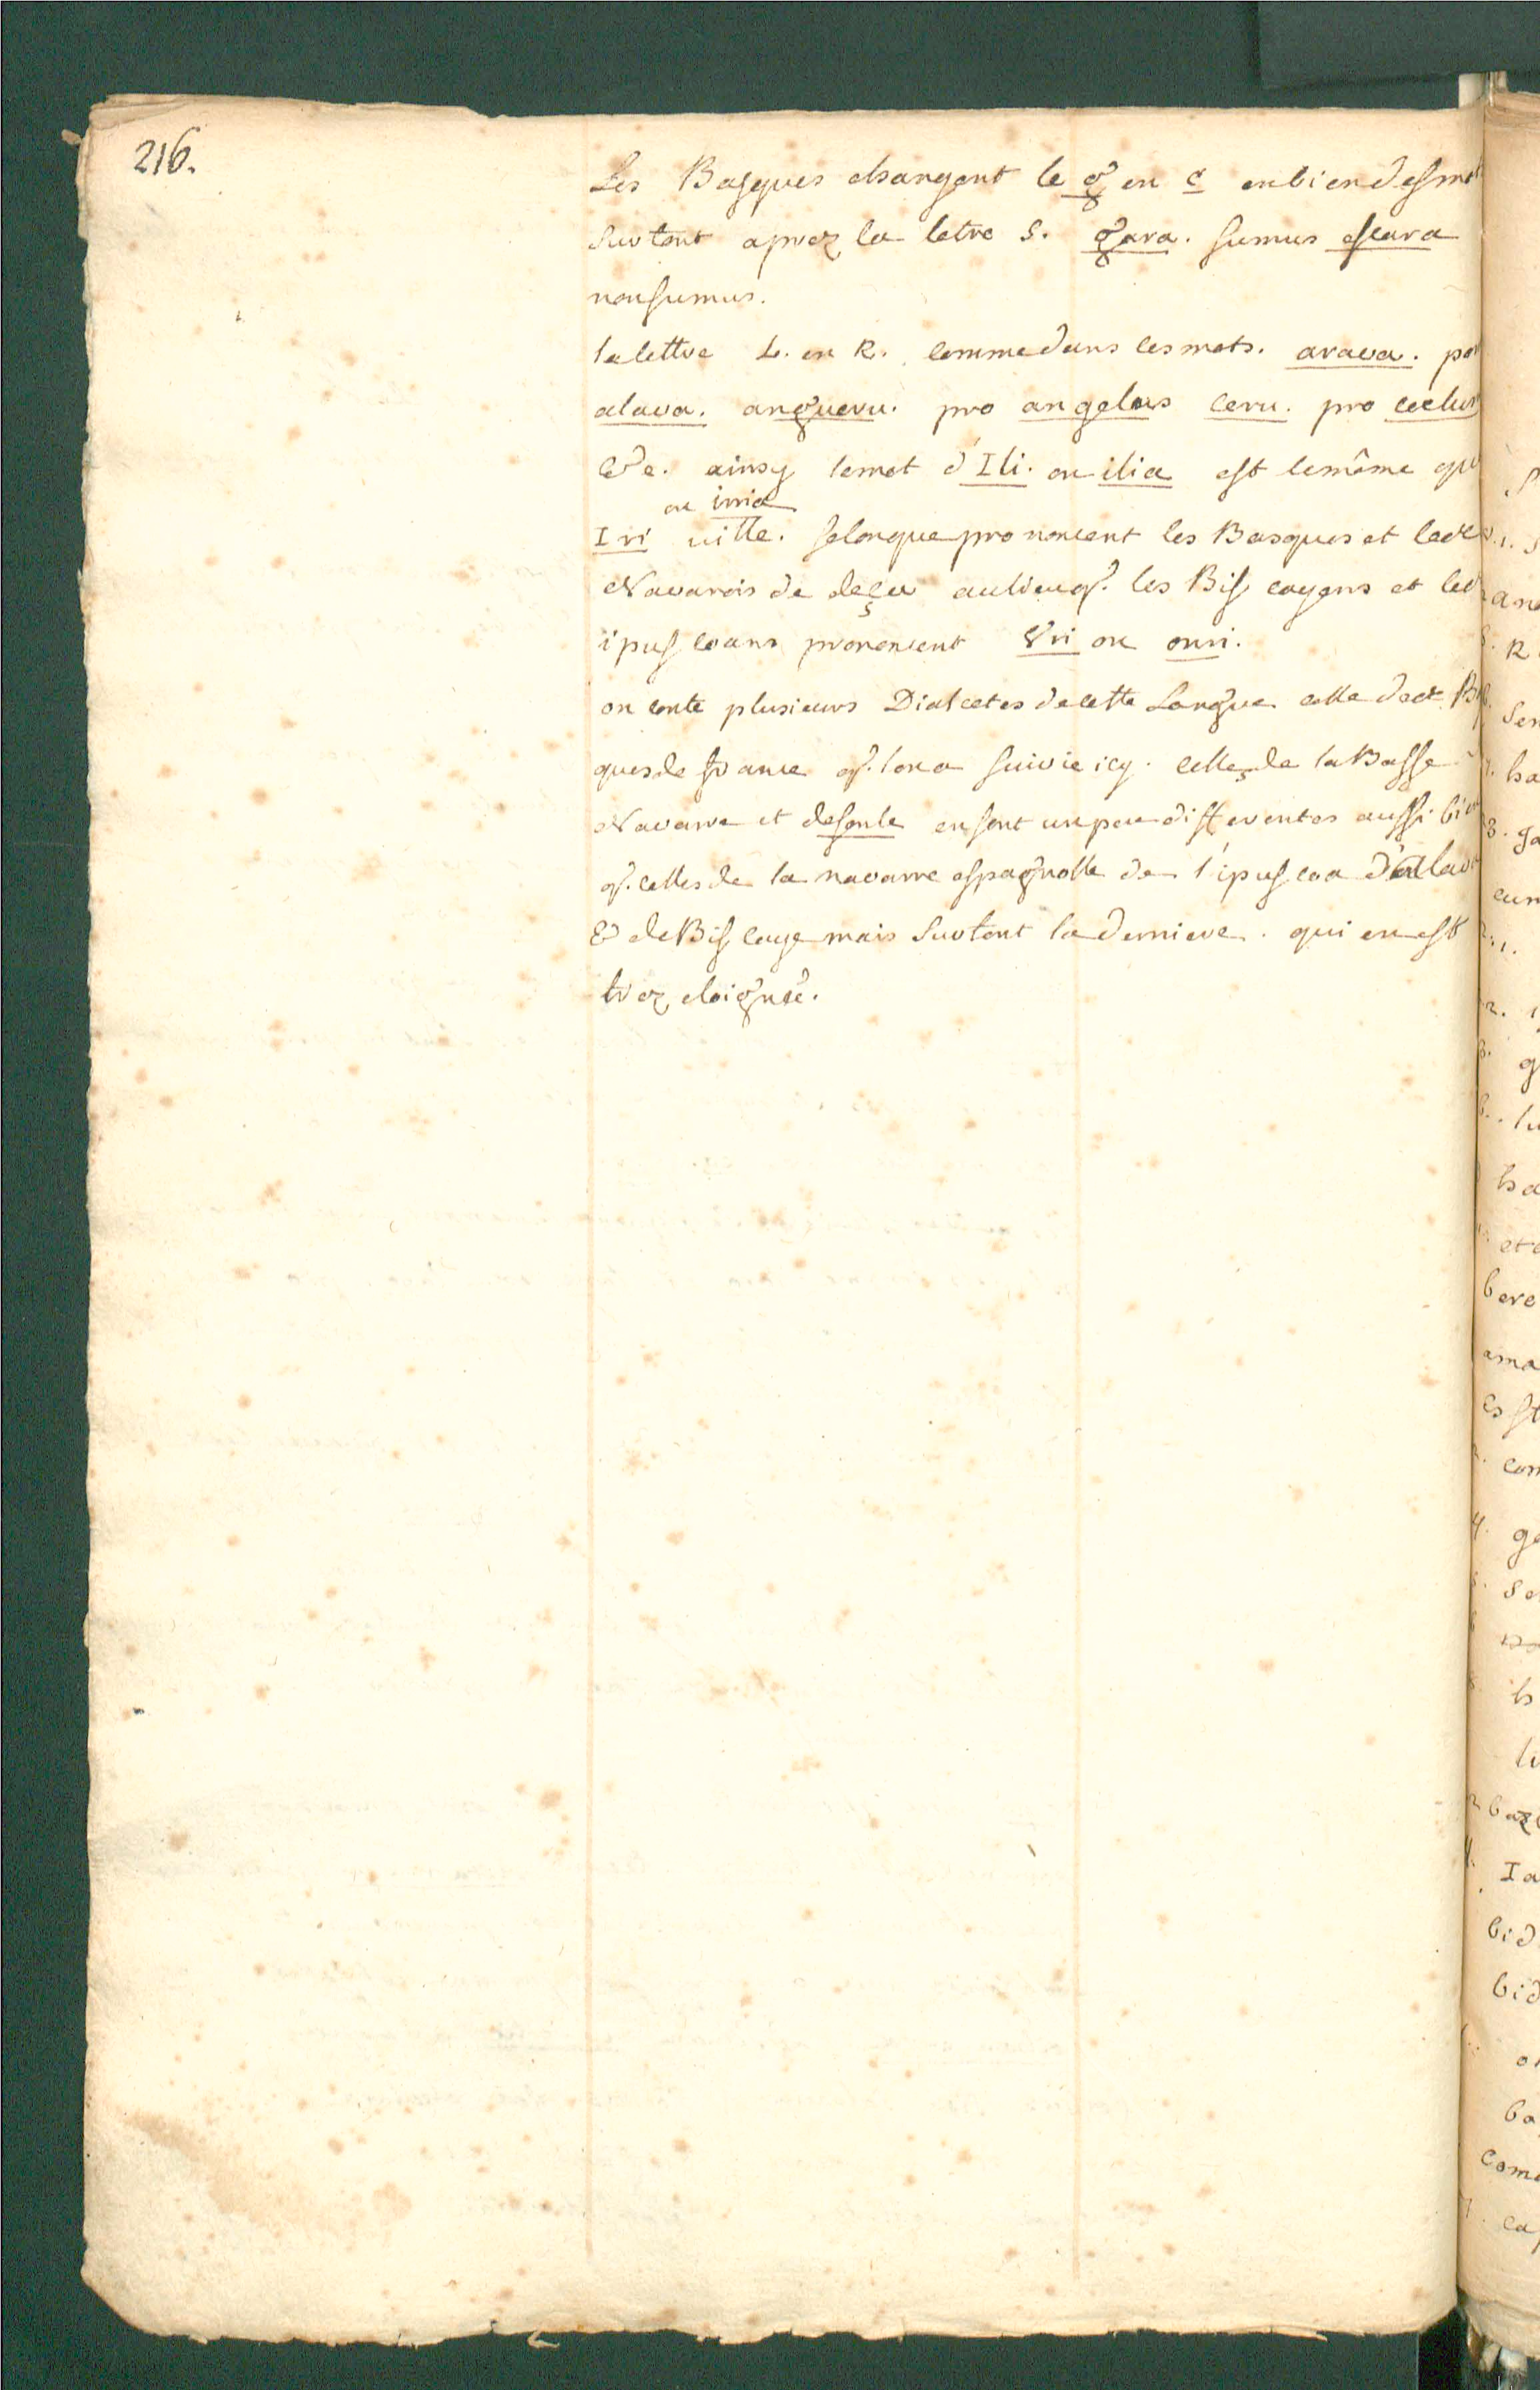 216.
Les Basques changent le g en c en bien des mot
surtout aprez la letre S. gara. sumus escara
non sumus.
la lettre L. en R. comme dans les mots. arava. po
alava. angueru. pro angelus ceru. pro coelus
&c. ainsy le mot d'Ili. ou ilia est le même qu
ou irria
Iri ville. selon que prononcent les Basques et les
Navarois de deça au lieu q. les Biscayens et les
ipuscoans prononcent Uri ou ouri.
on conte plusieurs Dialectes de cette Langue celle des B
ques de france q. lon a suivie icy. celles de la Basse
Navarre et de soule en sont un peu differentes aussi bi
q. celles de la navarre espagnolle de l'ipuscoa d'allav
& de Biscaye mais surtout la derniere. qui en est
trez eloignée.
R
ha
ga
cun
ha
bere
ama
con
ge
Ia
bid
bid
ba